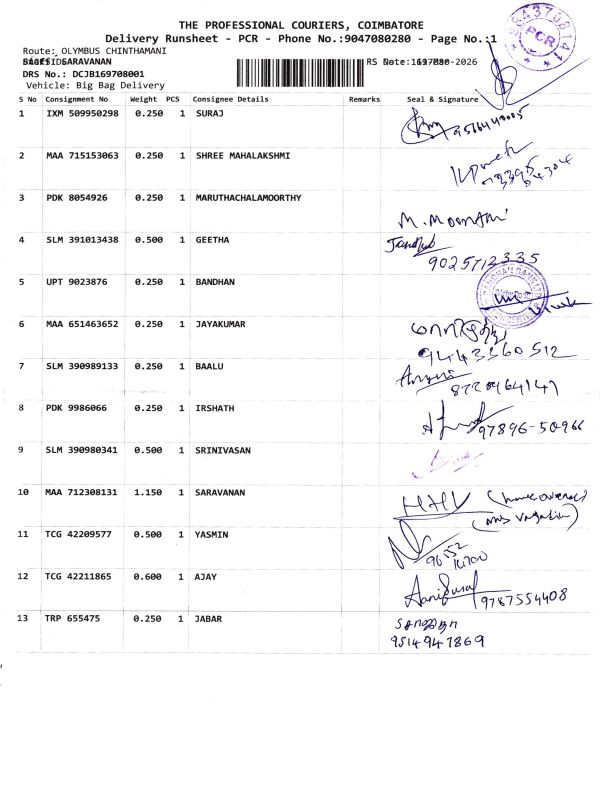 THE PROFESSIONAL COURIERS, COIMBATORE
Delivery Runsheet - PCR - Phone No.:9047080280 - Page No.:1
Route: OLYMBUS CHINTHAMANI
SARAVANAN
DRS No.: DCJB169708001
Vehicle: Big Bag Delivery
PCR
S No Consignment No Weight PCS Consignee Details Remarks Seal & Signature
1 IXM 509950298 0.250 1 SURAJ
2 MAA 715153063 0.250 1 SHREE MAHALAKSHMI
3 PDK 8054926 0.250 1 MARUTHACHALAMOORTHY
4 SLM 391013438 0.500 1 GEETHA
9025712335
5 UPT 9023876 0.250 1 BANDHAN
6 MAA 651463652 0.250 1 JAYAKUMAR
9443260512
7 SLM 390989133 0.250 1 BAALU
8 PDK 9986066 0.250 1 IRSHATH
97896-50966
9 SLM 390980341 0.500 1 SRINIVASAN
10 MAA 712308131 1.150 1 SARAVANAN
11 TCG 42209577 0.500 1 YASMIN
12 TCG 42211865 0.600 1 AJAY
9787554408
13 TRP 655475 0.250 1 JABAR
9514947869